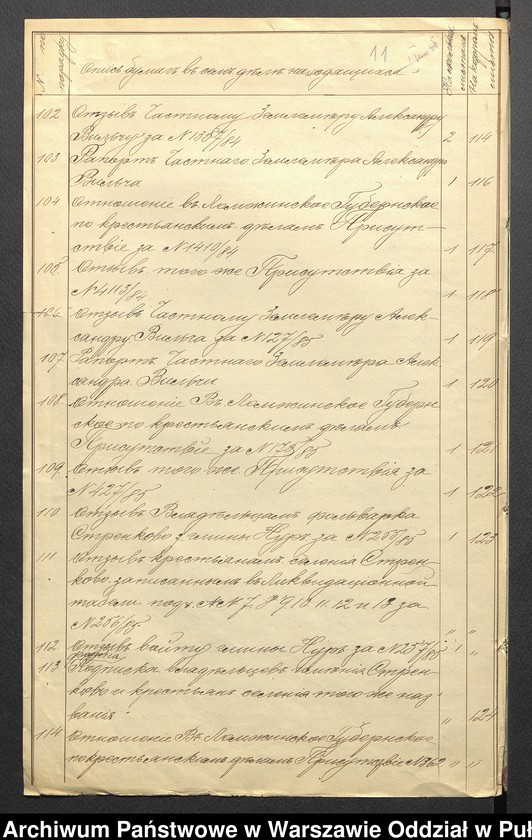 11
Опись бумагъ въ семъ дѣлѣ находящихся
102 Отзывъ Частному Землемѣру Александру
Вильчу за N 1387/84 2 114
103 Рапортъ Частнаго Землемѣра Александра
Вильча 1 116
104 Отношеніе въ Ломжинское Губернское
по крестьянскимъ дѣламъ Присут-
ствіе за N 1410/84 1 117
105 Отзывъ того же Присутствія за
N 4113/84 1 118
106 Отзывъ Частному Землемѣру Алек-
сандру Вильча за N 27/85 1 119
107 Рапортъ Частнаго Землемѣра Алек
сандра Вильчи 1 120
108 Отношеніе Въ Ломжинское Губерн
ское по крестьянскимъ дѣламъ
Присутствіе за N 175/85 1 121
109 Отзывъ того же Присутствія за
N 427/85 1 122
110 Отзывъ Владѣльцамъ фольварка
Стренково гмины Нуръ за N 255/85 1 123
111 Отзывъ крестьянамъ селенія Стрен-
ково записаннымъ въ Ликвидаціонной
табели подъ N N 7. 8. 9. 10. 11. 12 и 13 за
N 256/85 " "
112 Отзывъ войту гмины Нуръ за N 257/85 1 "
113 Подписка владѣльцевъ имѣнія Стрен-
ково и крестьянъ селенія того же наз
ванія " 124
114 Отношеніе Въ Ломжинское Губернское
по крестьянскимъ дѣламъ Присутствіе N 362 " "
Archiwum Państwowe w Warszawie Oddział w Puł